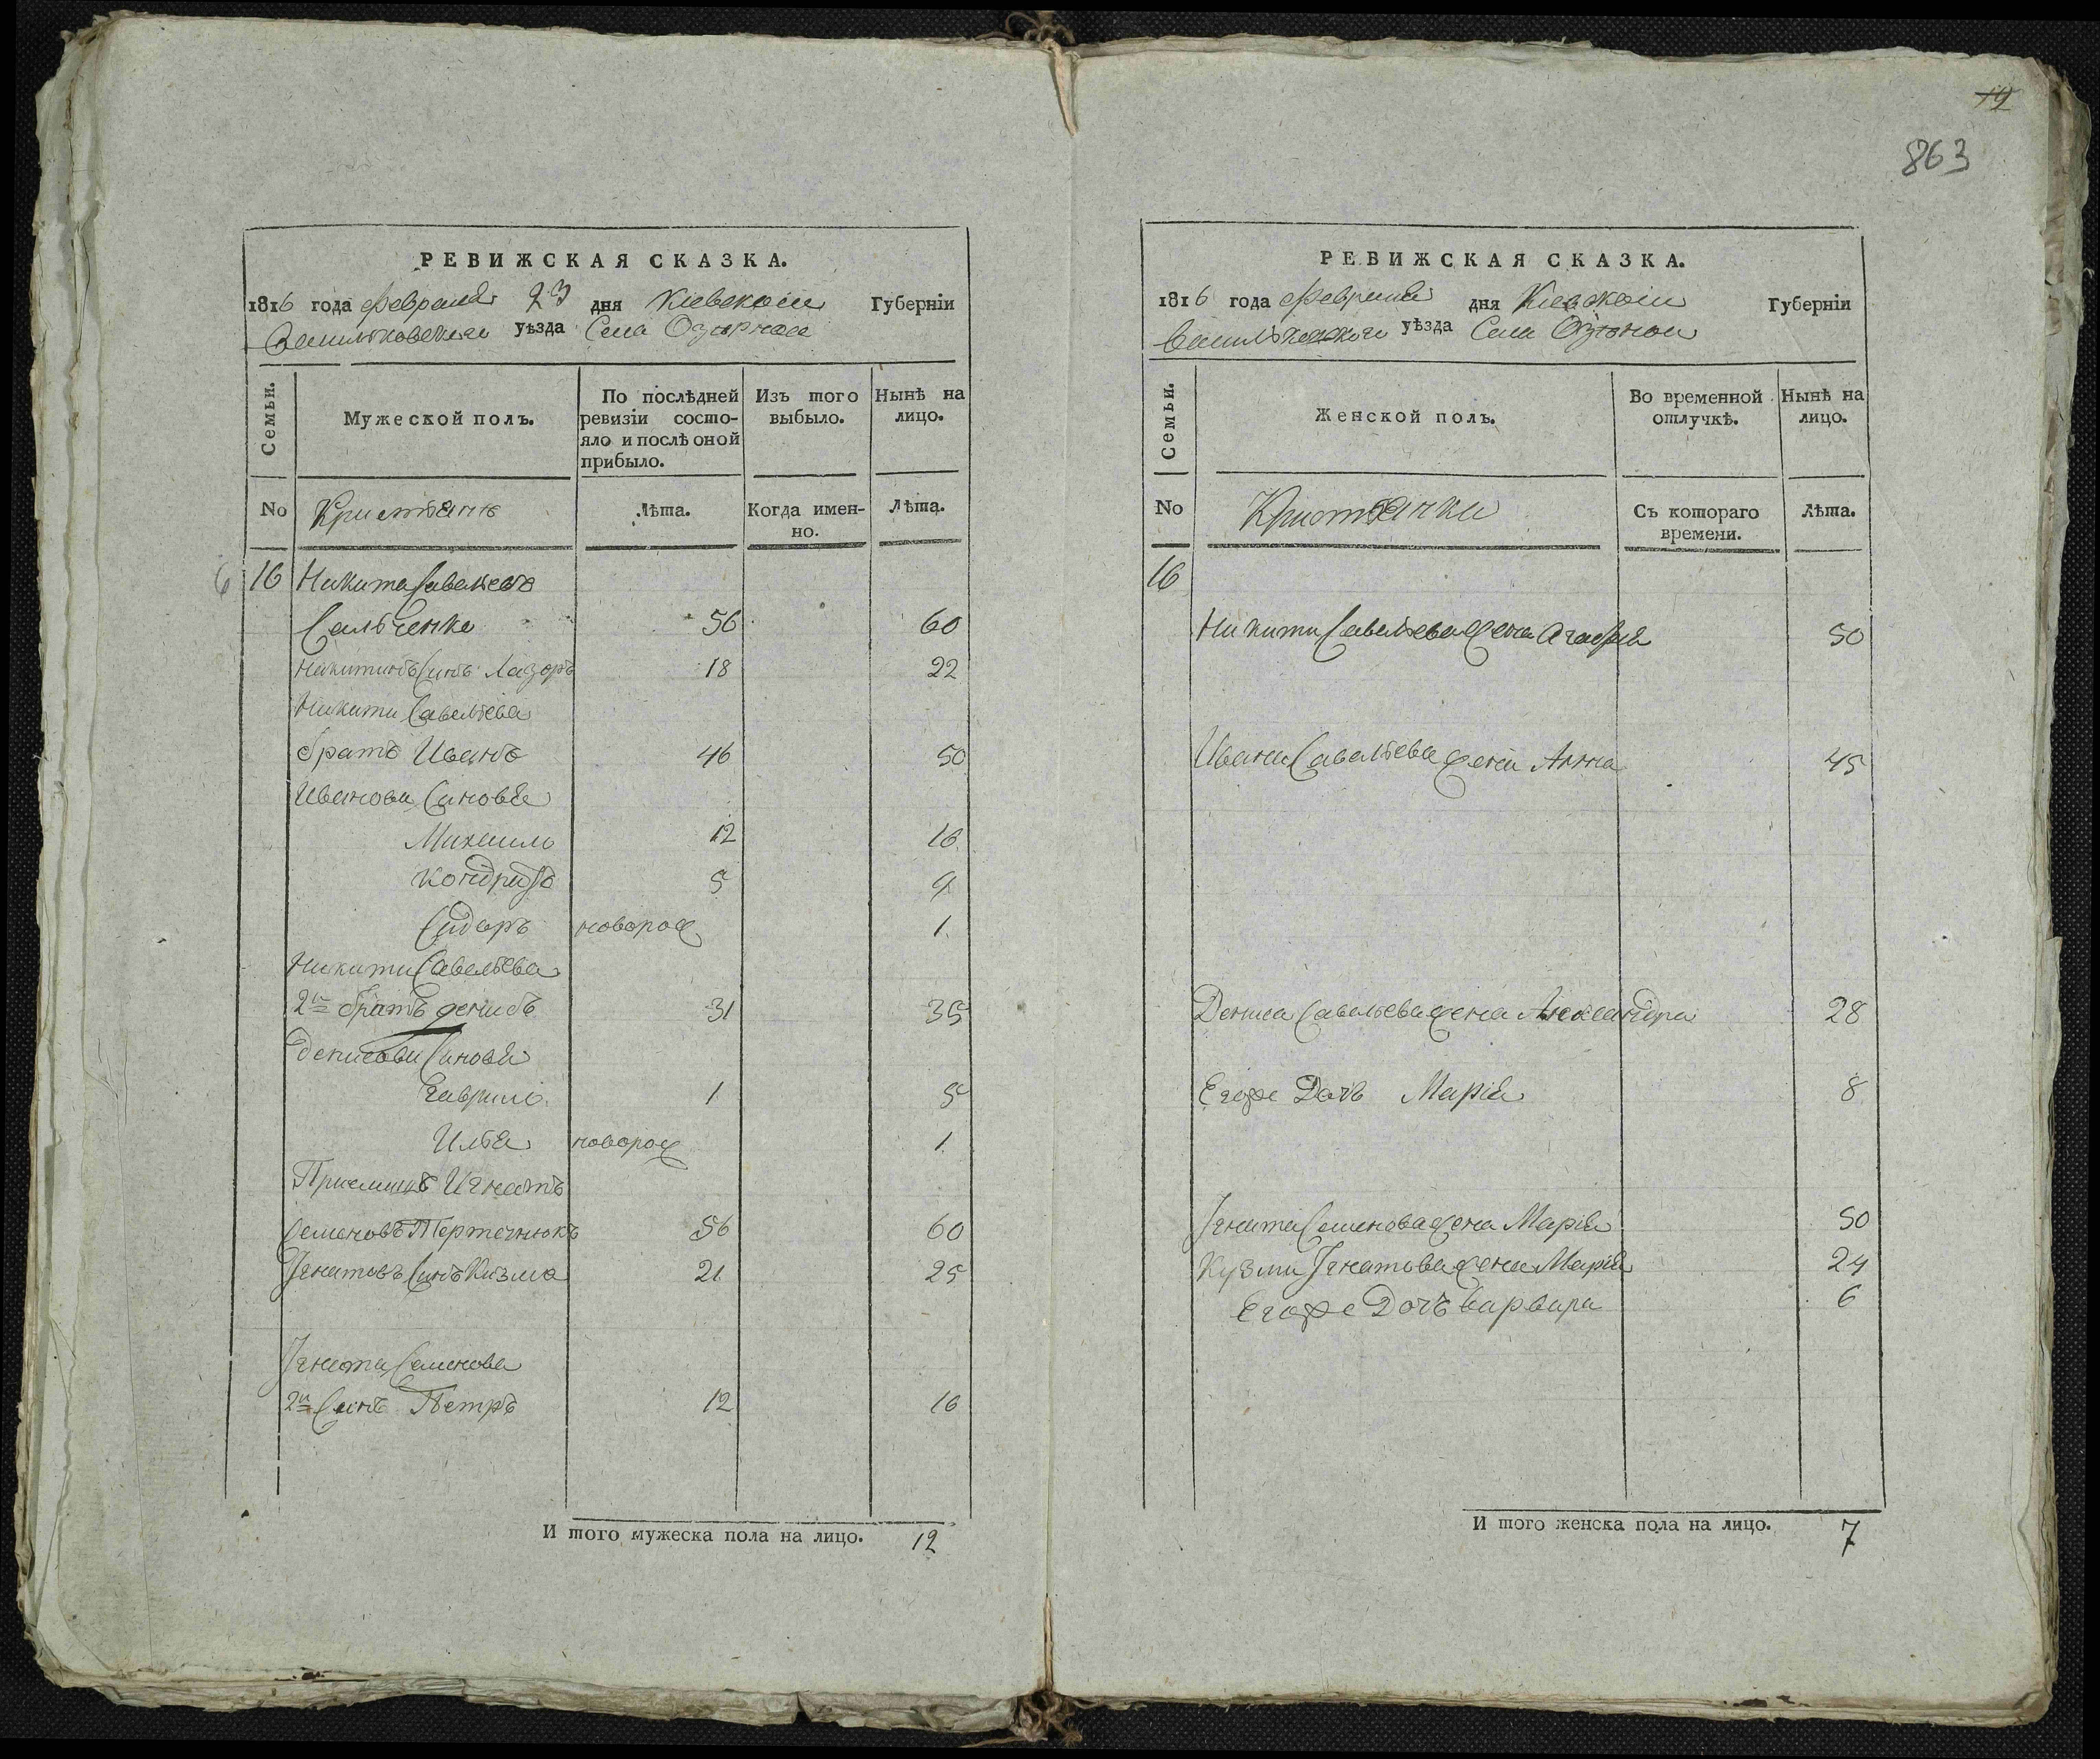 РЕВИЖСКАЯ СКАЗКА.
1816 года февраля 23 дня Кіевской Губерніи
Васильковского уѣзда Села Озюрной
Семьи.
Мужеской полъ.
По послѣдней
ревизіи состо-
яло и послѣ оной
прибыло.
Изъ того
выбыло.
Нынѣ на
лицо.
No Кристьянѣ Лѣта. Когда имен-
но. Лѣта.
6 16 Никита Савельевъ
Сальченко 56 60
Никитинъ Синъ Лазоръ 18 22
Никити Савельева
братъ Иванъ 46 50
Иванови Синовья
Михаило 12 16
Кондратъ 5 9
Сидоръ новорож 1
Никити Савельева
2й братъ денисъ 31 35
денисови Синовя
Гаврило 1 5
Илья новорож 1
Приемишъ Игнатъ
Семеновъ 56 60
Ігнатовъ Синъ Кузма 21 25
Ігната Семенова
2й Синъ Петръ 12 16
И того мужеска пола на лицо. 12
19
863
РЕВИЖСКАЯ СКАЗКА.
1816 года Февраля дня Кіевской Губерніи
Васильковского уѣзда Села Озюной
Семьи.
Женской полъ.
Во временной
отлучкѣ.
Нынѣ на
лицо.
No Кристьянки Съ котораго
времени. Лѣта.
16
Никити Савельева жена Агафия 50
Ивана Савельева жена Анна 45
Дениса Савельева жена Александра 28
Егоже Дочь Марія 8
Ігната Семенова жена Марія 50
Кузми Ігнатова жена Марія 24
Егоже Дочъ Варвара 6
И того женска пола на лицо. 7